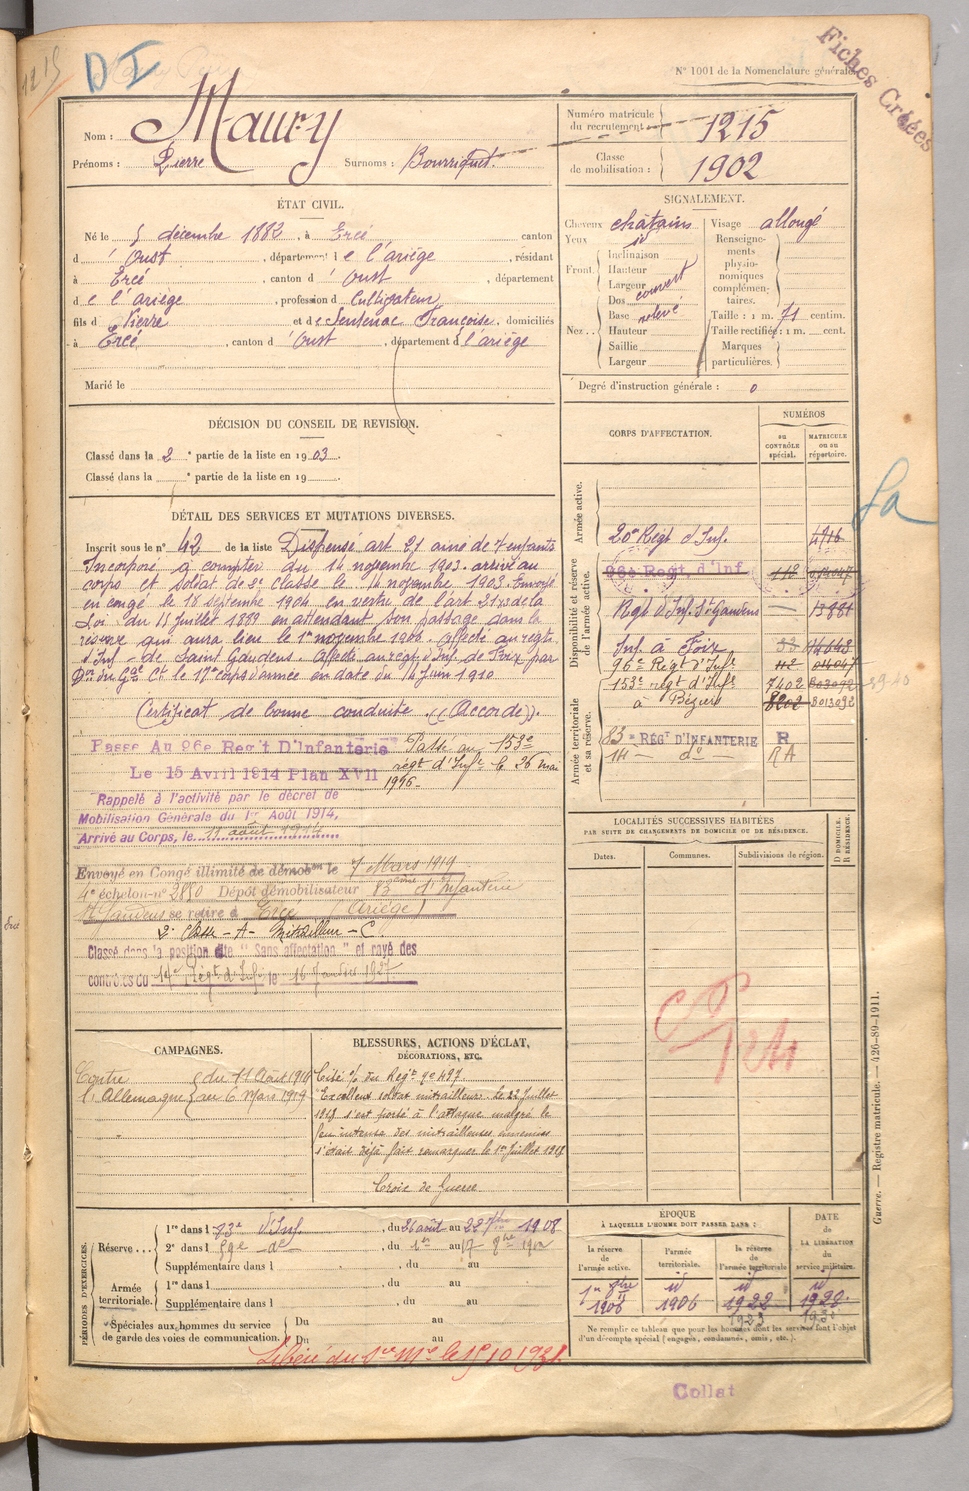 1215
D I
Fiches Créées
N° 1001 de la Nomenclature générale.
Nom : Maury
Prénoms : Pierre Surnoms : Bourriquet.
Numéro matricule du recrutement 1215
Classe de mobilisation : 1902
ÉTAT CIVIL.
Né le 5 décembre 1882, à Ercé canton
d'Oust, département de l'ariège, résidant
à Ercé, canton d'Oust, département
de l'ariège, profession d Cultivateur
fils d Pierre et de Sentenac Françoise, domiciliés
à Ercé, canton d'Oust, département d l'ariège
Marié le
SIGNALEMENT.
Cheveux châtains
Yeux id
Front. Inclinaison
Hauteur
Largeur couvert
Nez. Dos
Base relevé
Hauteur
Saillie
Largeur
Visage allongé
Renseignements physionomiques complémentaires.
Taille : 1 m. 71 centim.
Taille rectifiée : 1 m. cent.
Marques particulières.
Degré d'instruction générale : 0
DÉCISION DU CONSEIL DE REVISION.
Classé dans la 2e partie de la liste en 1903.
Classé dans la e partie de la liste en 19 .
DÉTAIL DES SERVICES ET MUTATIONS DIVERSES.
Inscrit sous le n° 42 de la liste Dispensé art 21 ainé de 7 enfants
Incorporé a compter du 14 novembre 1903. arrivé au
corps et soldat de 2e classe le 14 novembre 1903. Envoyé
en congé le 18 septembre 1904 en vertu de l'art 21 de la
Loi du 15 juillet 1889 en attendant son passage dans la
réserve qui aura lieu le 1er novembre 1906. affecté au regt
d'Inf de Saint Gaudens. Affecté au regt d'Inf. de Foix par
Don du Gal Ct le 17e corps d'armée en date du 14 Juin 1910
Certificat de bonne conduite ((Accordé)).
Passe Au 96e Reg't D'Infanterie
Le 15 Avril 1914 Plan XVII
Passé au 153e
régt d'Infie le 26 mai
Rappelé à l'activité par le décret de
Mobilisation Générale du 1er Août 1914,
Arrivé au Corps, le 11 août 1914
Envoyé en Congé illimité de démobon le 7 Mars 1919
4e échelon n° 2850 Dépôt démobilisateur 83ème d'Infanterie
St Gaudens se retire à Ercé (Ariège)
2e Classe - A - Mitrailleur - C.
Classé dans la position dite "Sans affectation" et rayé des
contrôles du 14e Régt d'Infie le 16 Janvier 1927
CORPS D'AFFECTATION.
NUMÉROS
au CONTRÔLE spécial.
MATRICULE ou au répertoire.
Armée active.
20e Régt d'Inf. 4716
Disponibilité et réserve de l'armée active.
96e Regt. d'Inf 112 014047
Regt d'Inf. St Gaudens — 13881
Inf. à Foix
96e Regt d'Infie 112 014047
Armée territoriale et sa réserve.
153e régt d'Infie 7402
à Béziers 8202 8013092
83e RÉGT D'INFANTERIE R
14 — do — RA
LOCALITÉS SUCCESSIVES HABITÉES
PAR SUITE DE CHANGEMENTS DE DOMICILE OU DE RÉSIDENCE.
Dates. Communes. Subdivisions de région.
D DOMICILE. R RÉSIDENCE.
CAMPAGNES.
Contre l'Allemagne
du 11 Août 1914
au 6 Mars 1919
BLESSURES, ACTIONS D'ÉCLAT,
DÉCORATIONS, ETC.
Cité % du Regt no 497
Excellent soldat mitrailleur. Le 22 juillet
1918 s'est porté à l'attaque malgré le
feu intense des mitrailleuses ennemies
s'était déjà fait remarquer le 1er Juillet 1918
Croix de Guerre
PÉRIODES D'EXERCICES.
Réserve...
1re dans l 83e d'Inf. , du 31 août au 22 7bre 1908
2e dans l 59e do , du 1er au 17 9bre
Supplémentaire dans l , du au
Armée territoriale.
1re dans l , du au
Supplémentaire dans l , du au
Spéciales aux hommes du service de garde des voies de communication.
Du au
Du au
Libéré du Sce Mre le 15 10 1931.
ÉPOQUE
À LAQUELLE L'HOMME DOIT PASSER DANS :
la réserve de l'armée active.
l'armée territoriale.
la réserve de l'armée territoriale
DATE DE LA LIBÉRATION du service militaire.
1906 1906 1922 1928
1923
Ne remplir ce tableau que pour les hommes dont les services font l'objet
d'un décompte spécial (engagés, condamnés, omis, etc.).
Guerre. — Registre matricule. — 426-89-1911.
Collat